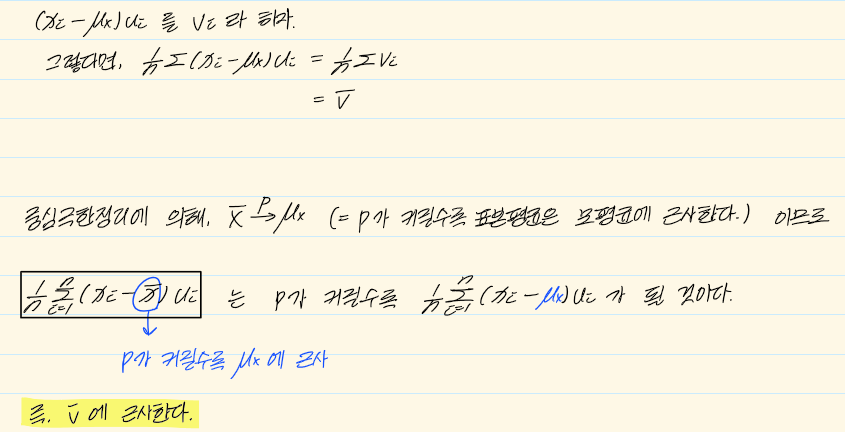 (xᵢ - μx)uᵢ 를 vᵢ 라 하자.
그렇다면, 1/n Σ(xᵢ - μx)uᵢ = 1/n Σvᵢ
= v̄
중심극한정리에 의해, X̄ →ᵖ μx (= p가 커질수록 표본평균은 모평균에 근사한다.) 이므로
1/n Σⁿᵢ₌₁ (xᵢ - x̄)uᵢ 는 p가 커질수록 1/n Σⁿᵢ₌₁ (xᵢ - μx)uᵢ 가 될 것이다.
p가 커질수록 μx에 근사
즉, v̄에 근사한다.